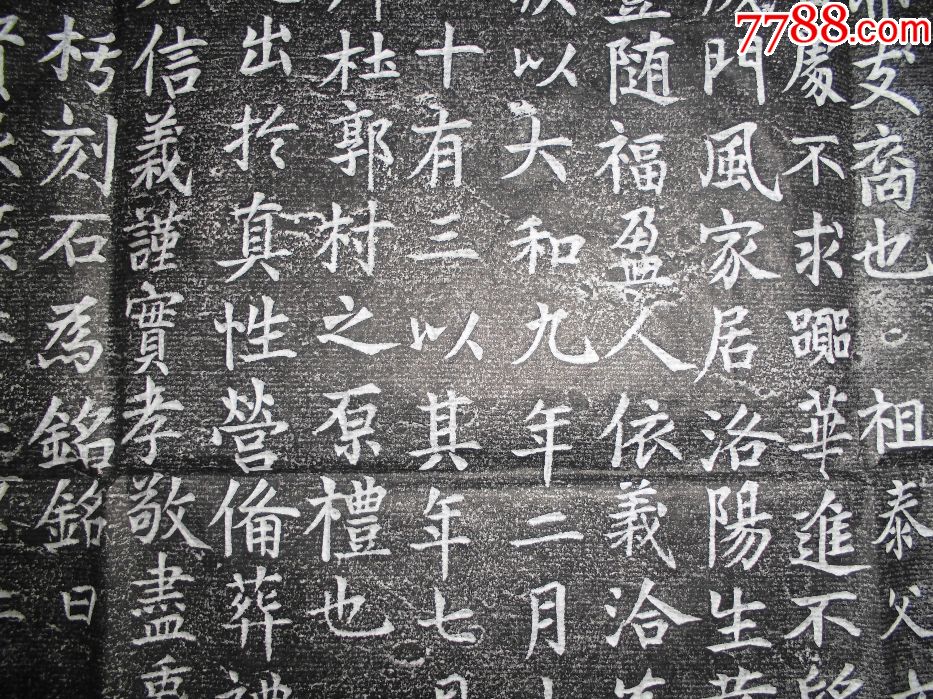 7788.com
支裔也祖泰父
處不求華進不
門風家居洛陽生
随福盈人依義洽
以大和九年二月
十有三以其年七
杜郭村之原禮也
出於真性營俻葬禮
信義謹實孝敬盡重
刻石為銘銘曰